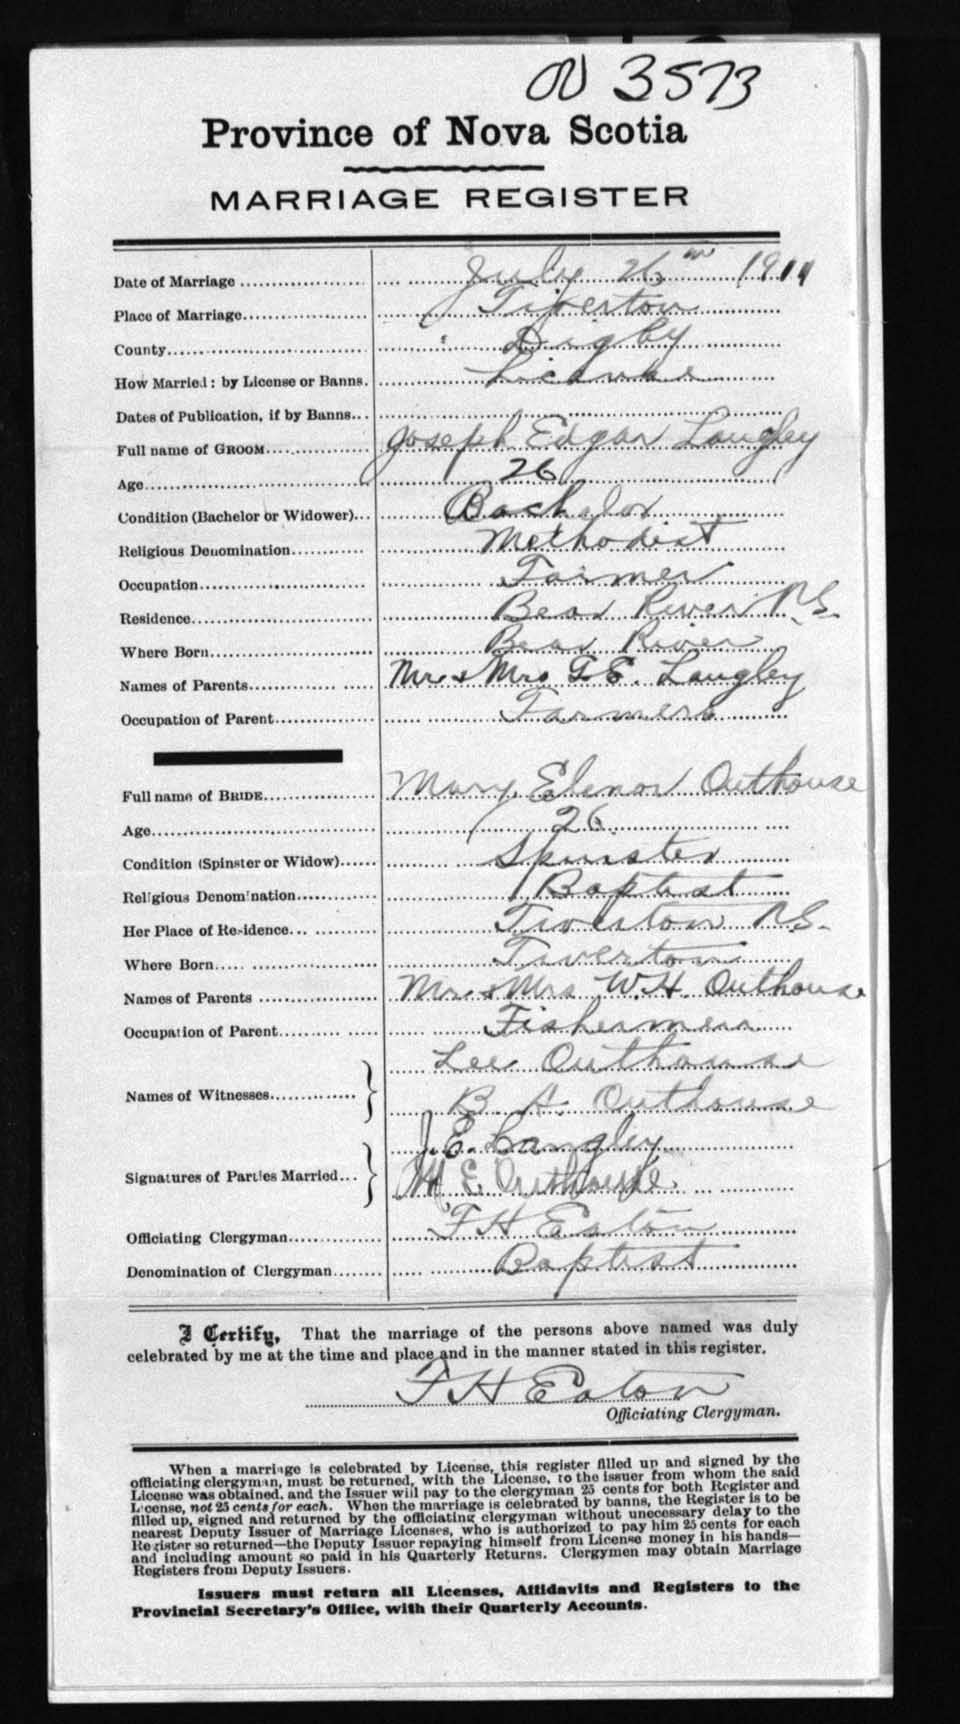 3573
Province of Nova Scotia
MARRIAGE REGISTER
Date of Marriage July 26th 1911
Place of Marriage Tiverton
County Digby
How Married: by License or Banns. License
Dates of Publication, if by Banns
Full name of GROOM Joseph Edgar Langley
Age 26
Condition (Bachelor or Widower) Bachelor
Religious Denomination Methodist
Occupation Farmer
Residence Bear River N.S.
Where Born Bear River
Names of Parents Mr & Mrs F. E. Langley
Occupation of Parent Farmers
Full name of BRIDE Mary Elenor Outhouse
Age 26
Condition (Spinster or Widow) Spinster
Religious Denomination Baptist
Her Place of Residence Tiverton N.S.
Where Born Tiverton
Names of Parents Mr & Mrs W. H. Outhouse
Occupation of Parent Fishermen
Names of Witnesses Lee Outhouse
B. A. Outhouse
Signatures of Parties Married J. E. Langley
M E Outhouse
Officiating Clergyman F H Eaton
Denomination of Clergyman Baptist
I Certify, That the marriage of the persons above named was duly
celebrated by me at the time and place and in the manner stated in this register.
F H Eaton
Officiating Clergyman.
When a marriage is celebrated by License, this register filled up and signed by the
officiating clergyman, must be returned, with the License, to the issuer from whom the said
License was obtained, and the Issuer will pay to the clergyman 25 cents for both Register and
License, not 25 cents for each. When the marriage is celebrated by banns, the Register is to be
filled up, signed and returned by the officiating clergyman without unnecessary delay to the
nearest Deputy Issuer of Marriage Licenses, who is authorized to pay him 25 cents for each
Register so returned—the Deputy Issuer repaying himself from License money in his hands—
and including amount so paid in his Quarterly Returns. Clergymen may obtain Marriage
Registers from Deputy Issuers.
Issuers must return all Licenses, Affidavits and Registers to the
Provincial Secretary's Office, with their Quarterly Accounts.